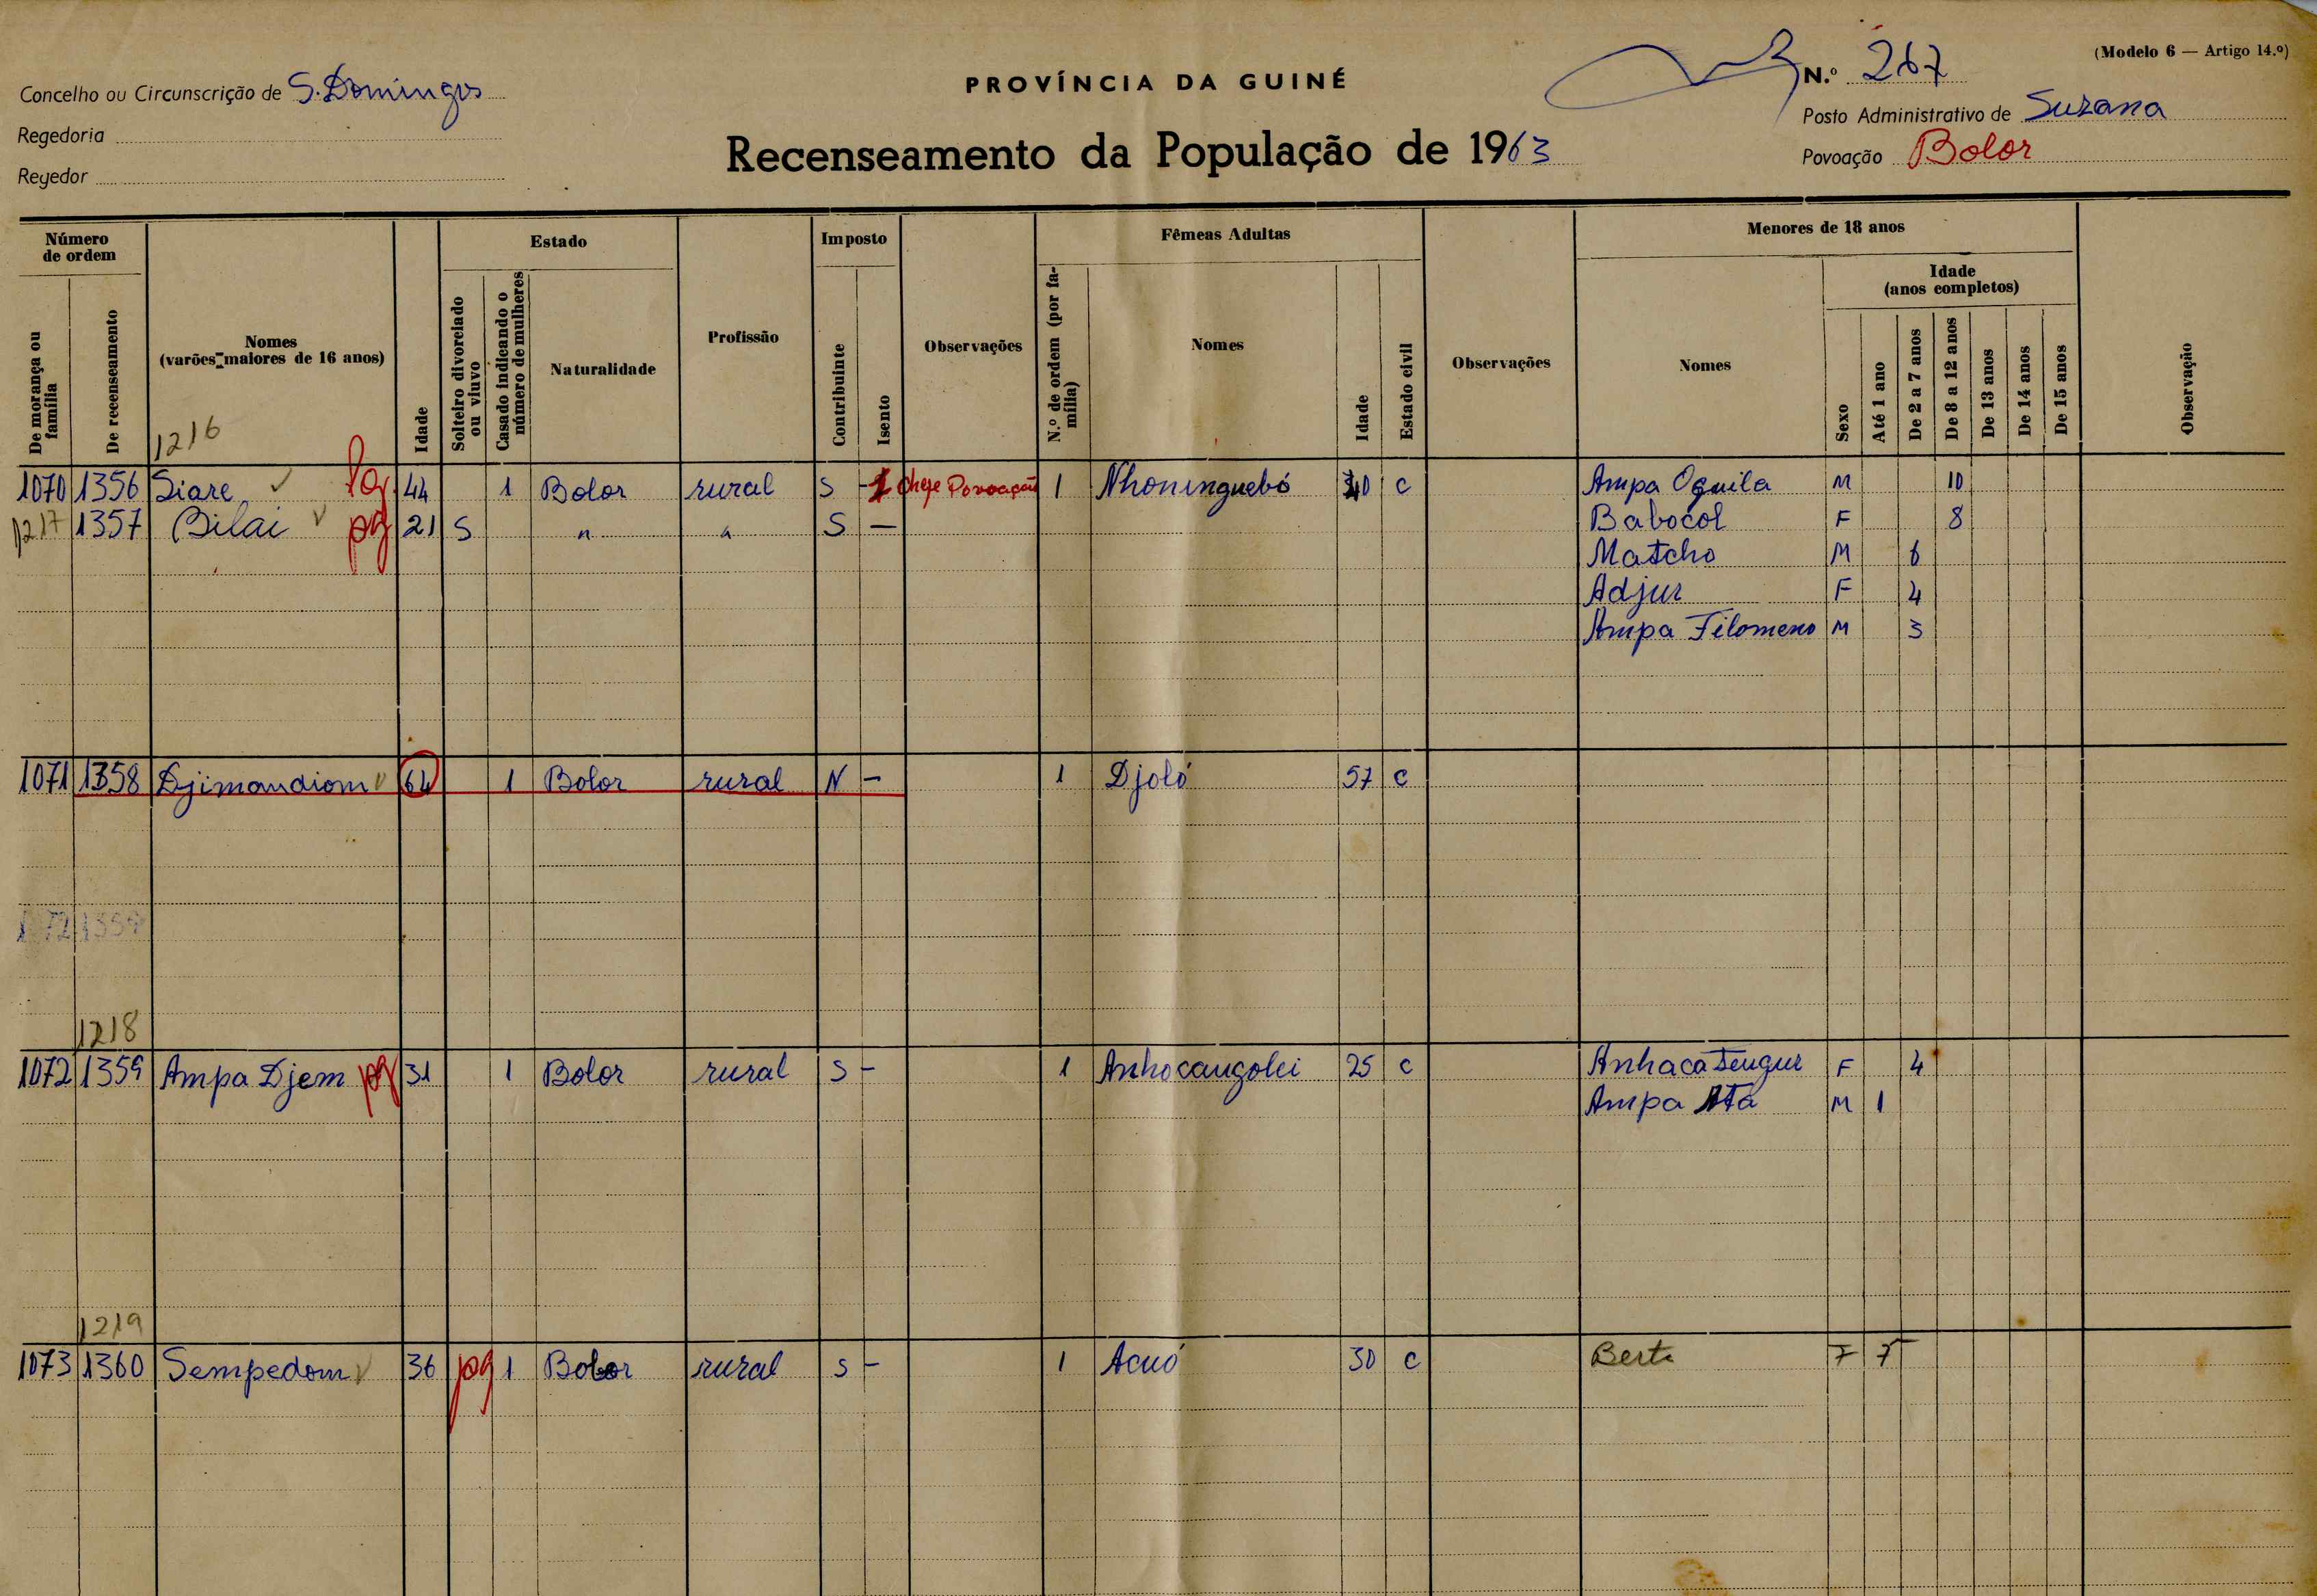 (Modelo 6 — Artigo 14.º)
PROVÍNCIA DA GUINÉ
N.º 267
Concelho ou Circunscrição de S. Domingos
Posto Administrativo de Suzana
Regedoria
Recenseamento da População de 1963
Povoação Bolor
Regedor
Número de ordem
De morança ou família
De recenseamento
Nomes
(varões maiores de 16 anos)
Idade
Estado
Solteiro divorciado ou viuvo
Casado indicando o número de mulheres
Naturalidade
Profissão
Imposto
Contribuinte
Isento
Observações
Fêmeas Adultas
N.º de ordem (por família)
Nomes
Idade
Estado civil
Observações
Menores de 18 anos
Nomes
Idade
(anos completos)
Sexo
Até 1 ano
De 2 a 7 anos
De 8 a 12 anos
De 13 anos
De 14 anos
De 15 anos
Observação
1216
1070 1356 Siare Pg 44 1 Bolor rural S - 1 chefe Povoação 1 Nhoninguebó 40 C Ampa Oquila M 10
1217 1357 Bilai pg 21 S " " S — Babocol F 8
Matcho M 6
Adjur F 4
Ampa Filomeno M 3
1071 1358 Djimandiom 64 1 Bolor rural N - 1 Djoló 57 C
1072 1359
1218
1072 1359 Ampa Djem pg 31 1 Bolor rural S - 1 Anhocangolei 25 C Anhacatengur F 4
Ampa Ata M 1
1219
1073 1360 Sempedom 36 pg 1 Bolor rural S - 1 Acuó 30 C Berta F 7